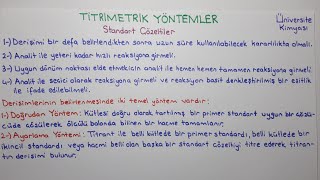 TİTRİMETRİK YÖNTEMLER
Üniversite
Kimyası
Standart Çözeltiler
1-) Derişimi bir defa belirlendikten sonra uzun süre kullanılabilecek kararlılıkta olmalı.
2-) Analit ile yeteri kadar hızlı reaksiyona girmeli.
3-) Uygun dönüm noktası elde etmek için analit ile hemen hemen tamamen reaksiyona girmeli
4-) Analit ile seçici olarak reaksiyona girmeli ve reaksiyon basit denkleştirilmiş bir eşitlik
ile ifade edilebilmeli.
Derişimlerinin belirlenmesinde iki temel yöntem vardır:
1-) Doğrudan Yöntem: Kütlesi doğru olarak tartılmış bir primer standart uygun bir çözücü-
cüde çözülerek, ölçülü balonda bilinen bir hacme tamamlanır.
2-) Ayarlama Yöntemi: Titrant ile belli kütlede bir primer standardı, belli kütlede bir
ikincil standardı veya hacmi belli olan başka bir standart çözeltiyi titre ederek, titran-
tın derişimi bulunur.